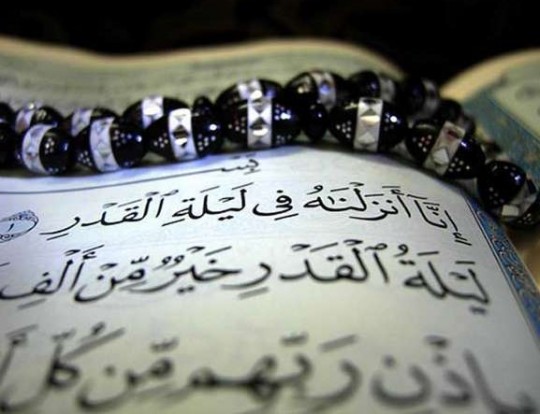 إِنَّا أَنزَلْنَٰهُ فِى لَيْلَةِ ٱلْقَدْرِ ١
لَيْلَةُ ٱلْقَدْرِ خَيْرٌ مِّنْ أَلْفِ
بِإِذْنِ رَبِّهِم مِّن كُلِّ